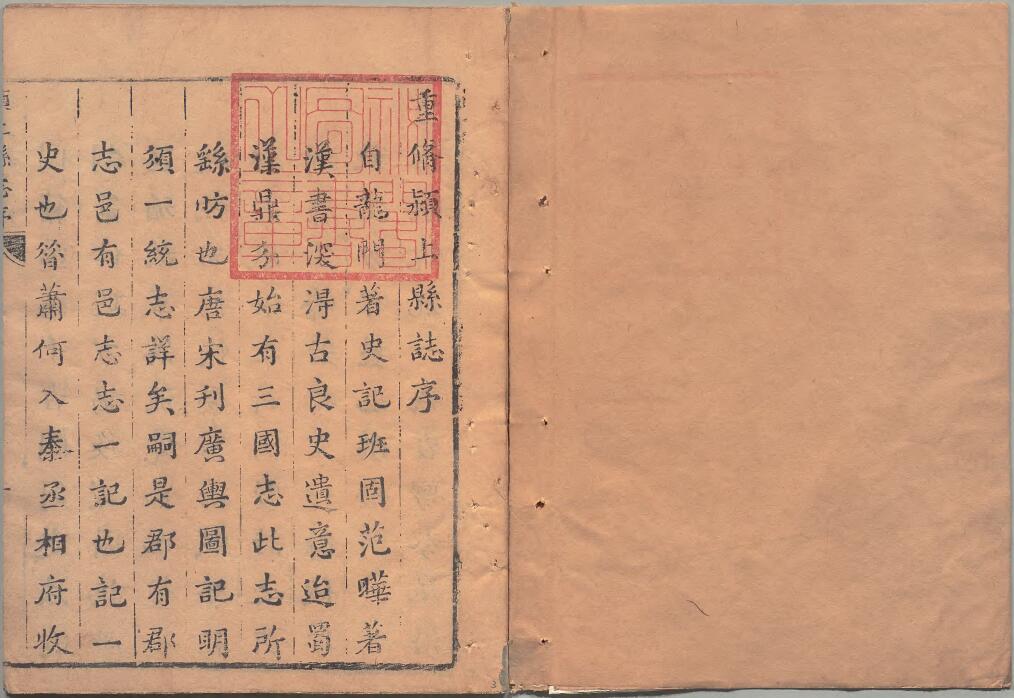 重脩潁上縣誌序
自龍門著史記班固范曄著
漢書深得古良史遺意迨蜀
漢鼎分始有三國志此志所
繇昉也唐宋刋廣輿圖記明
須一統志詳矣嗣是郡有郡
志邑有邑志志一記也記一
史也昝蕭何入秦丞相府收